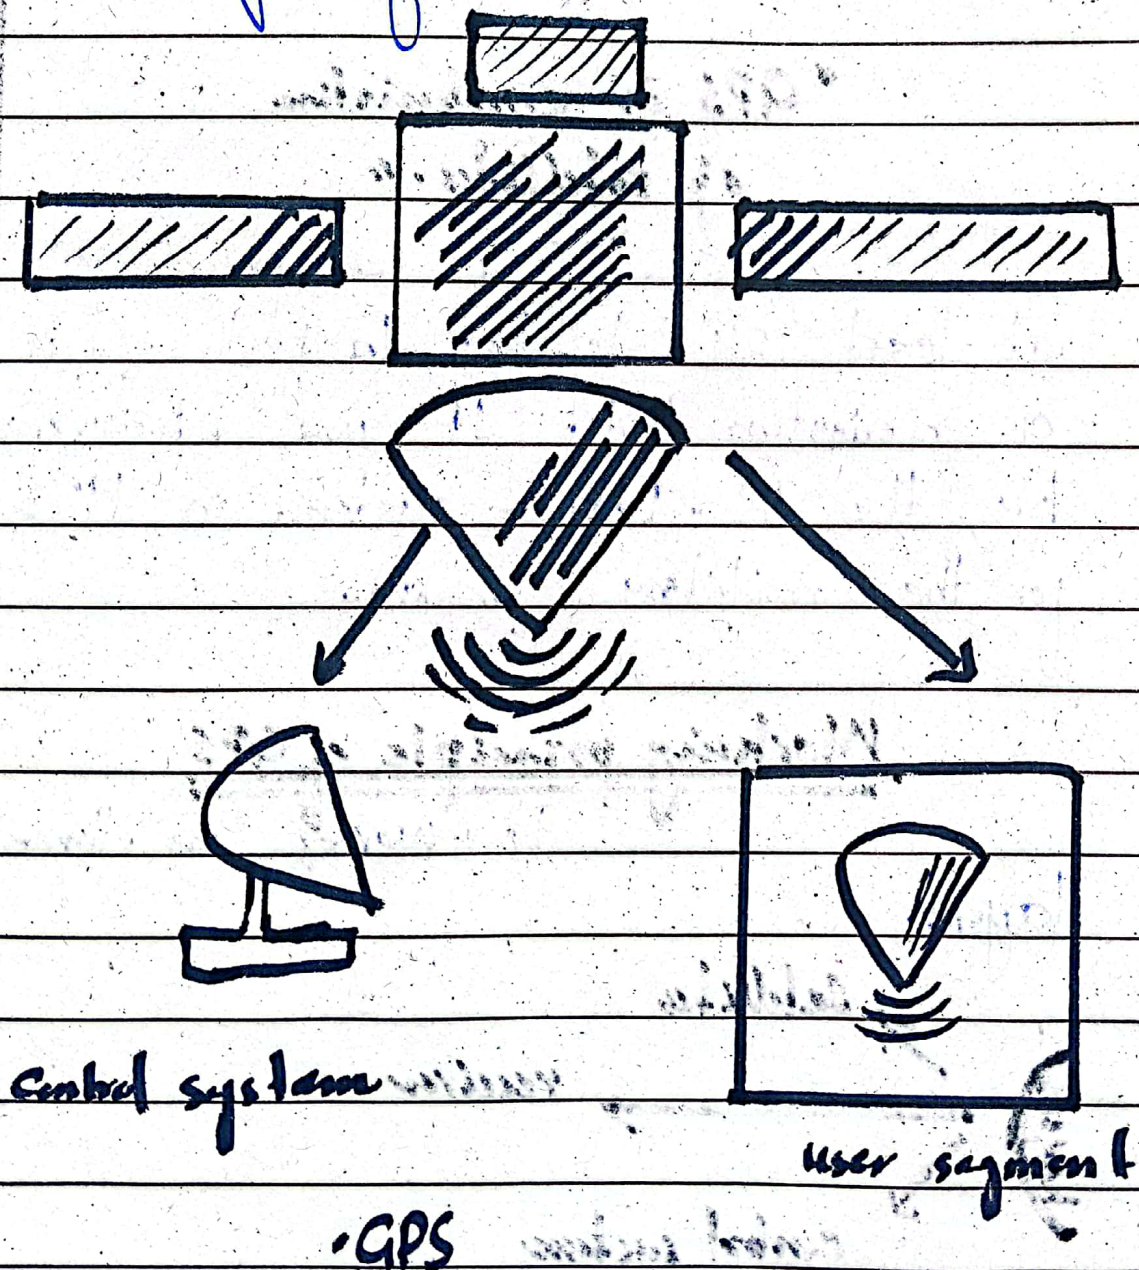 Control system
user segment
.GPS